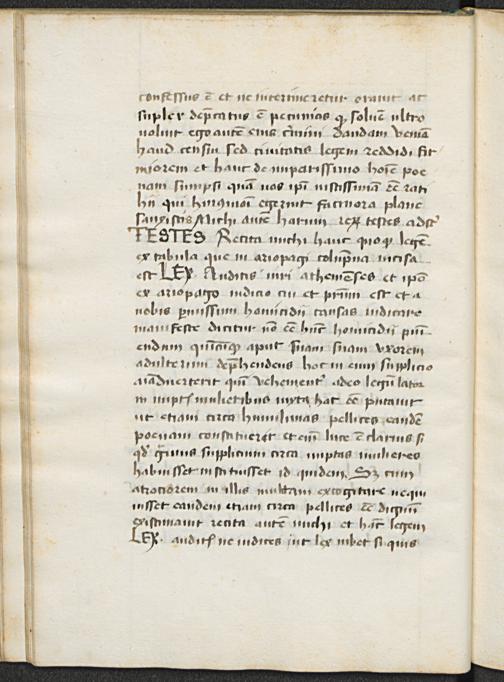 confessus ē et ne interimeretur orauit ac
suplex dep̄catus ē pecunias q̨ soluē ultro
uoluit ego autē eius c̄rimī dandam ueniā
haud censui sed ciuitatis legem reddidi fir
miorem et hanc de impurissimo hoīe poe
nam sumpsi quā uos ip̄i iustissimā eē rati
hīī qui huiusmōi egerint facinora plane
sanxistis Michi autē harum rerꝝ testes adste
TESTES Recita michi hanc quoqꝫ legē
ex tabula que in ariopagi columpna incisa
est LEX Auditis uiri athenīēses et ip̄o
ex ariopago iudicio cui et primū est et a
nobis permissum homicidii causas iudicare
manifeste dicitur nō eē hūc homicidii puni
endum quicūqꝫ aput suam suam uxorem
adulterum dep̄hendens hoc in eum supplicio
aīaduerterit quī uehementer adeo legum lator
in nuptis mulieribus iuxta hac eē putauit
ut etiam circa humilimas pellices eandē
poenam constituerit et enī luce ē clarius si
qđ grauius supplicium circa nuptas mulieres
habuisset instituisset id quidem. Sꝫ cum
atrociorem in illis multam excogitare nequi
uisset eandem etiam circa pellices eē dignum
existimauit recita autē michi et hāc legem
LEX. auditis ne iudices ut lex iubet si quis